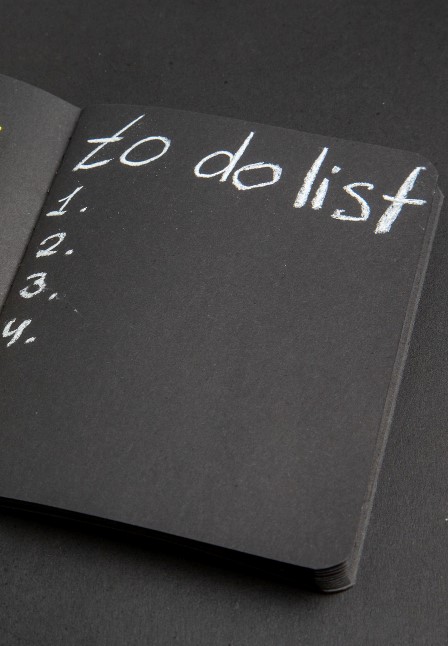 to do list
1.
2.
3.
4.